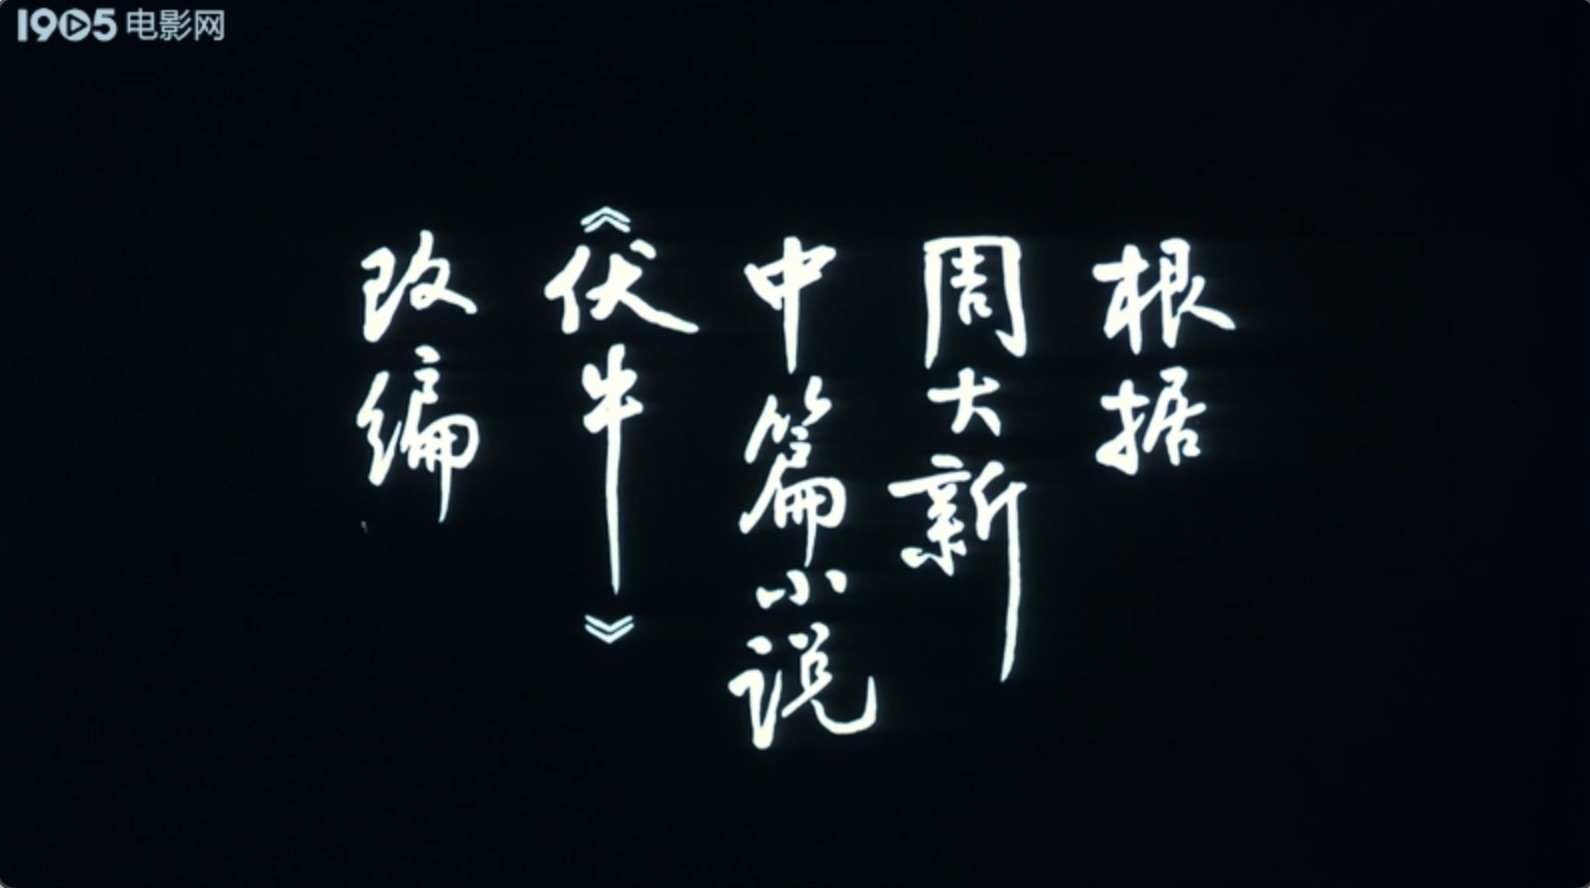 1905电影网
根据
周大新
中篇小说
《伏牛》
改编